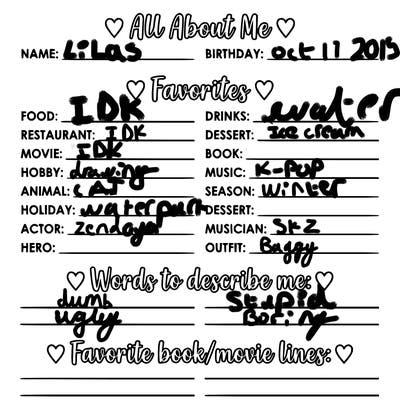 ♡ All About Me ♡
NAME: Lilas BIRTHDAY: oct 11 2015
♡ Favorites ♡
FOOD: IDK DRINKS: water
RESTAURANT: IDK DESSERT: Ice cream
MOVIE: IDK BOOK:
HOBBY: drawing MUSIC: K-POP
ANIMAL: CAT SEASON: winter
HOLIDAY: waterpark DESSERT:
ACTOR: Zendaya MUSICIAN: Skz
HERO: OUTFIT: Baggy
♡ Words to describe me: ♡
dumb Stupid
Ugly Boring
♡ Favorite book/movie lines: ♡